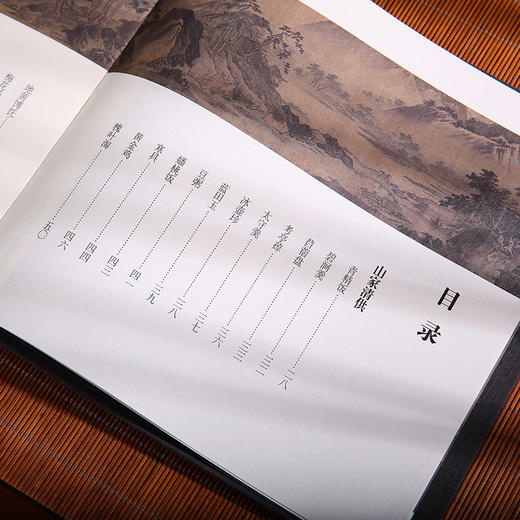 目录
山家清供
青精饭……二八
碧涧羹……三二
苜蓿盘……三三
考亭蔊……三六
太守羹……三七
冰壶珍……三八
蓝田玉……三九
豆粥……四一
蟠桃饭……四三
寒具……四四
黄金鸡……四六
槐叶淘……五〇
地黄馎饦
梅花